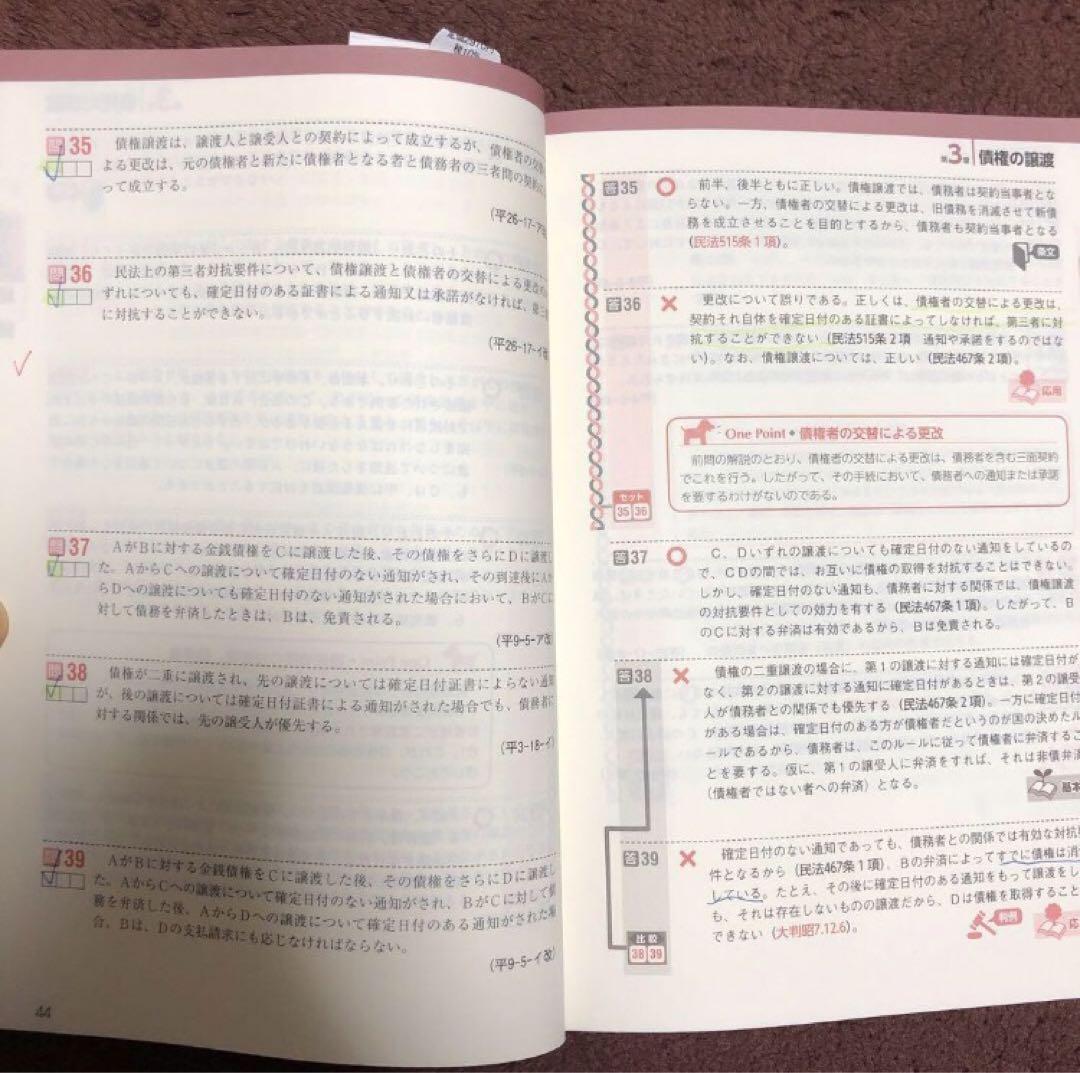 問35 債権譲渡は、譲渡人と譲受人との契約によって成立するが、債権者の交
よる更改は、元の債権者と新たに債権者となる者と債務者の三者間の契約に
って成立する。
(平26-17-ア
問36 民法上の第三者対抗要件について、債権譲渡と債権者の交替による更改
ずれについても、確定日付のある証書による通知又は承諾がなければ、第三
に対抗することができない。
(平26-17-イ
問37 AがBに対する金銭債権をCに譲渡した後、その債権をさらにDに譲渡し
た。AからCへの譲渡について確定日付のない通知がされ、その到達後にAか
らDへの譲渡についても確定日付のない通知がされた場合において、BがCに
対して債務を弁済したときは、Bは、免責される。
(平9-5-ア改
問38 債権が二重に譲渡され、先の譲渡については確定日付証書によらない通知
が、後の譲渡については確定日付証書による通知がされた場合でも、債務者に
対する関係では、先の譲受人が優先する。
(平3-18-イ)
問39 AがBに対する金銭債権をCに譲渡した後、その債権をさらにDに譲渡し
た。AからCへの譲渡について確定日付のない通知がされ、BがCに対して債
務を弁済した後、AからDへの譲渡について確定日付のある通知がされた場
合、Bは、Dの支払請求にも応じなければならない。
(平9-5-イ改)
44
第3章 債権の譲渡
答35 ○ 前半、後半ともに正しい。債権譲渡では、債務者は契約当事者とな
らない。一方、債権者の交替による更改は、旧債務を消滅させて新債
務を成立させることを目的とするから、債務者も契約当事者となる
(民法515条1項)。
条文
答36 × 更改について誤りである。正しくは、債権者の交替による更改は、
契約それ自体を確定日付のある証書によってしなければ、第三者に対
抗することができない(民法515条2項 通知や承諾をするのではな
い)。なお、債権譲渡については、正しい(民法467条2項)。
応用
One Point◆債権者の交替による更改
前問の解説のとおり、債権者の交替による更改は、債務者を含む三面契約
でこれを行う。したがって、その手続において、債務者への通知または承諾
を要するわけがないのである。
セット
35 36
答37 ○ C、Dいずれの譲渡についても確定日付のない通知をしているの
で、CDの間では、お互いに債権の取得を対抗することはできない。
しかし、確定日付のない通知も、債務者に対する関係では、債権譲渡
の対抗要件としての効力を有する(民法467条1項)。したがって、B
のCに対する弁済は有効であるから、Bは免責される。
答38 × 債権の二重譲渡の場合に、第1の譲渡に対する通知には確定日付が
なく、第2の譲渡に対する通知に確定日付があるときは、第2の譲受
人が債務者との関係でも優先する(民法467条2項)。一方に確定日付
がある場合は、確定日付のある方が債権者だというのが国の決めたル
ールであるから、債務者は、このルールに従って債権者に弁済するこ
とを要する。仮に、第1の譲受人に弁済をすれば、それは非債弁済
(債権者ではない者への弁済)となる。
基本
答39 × 確定日付のない通知であっても、債務者との関係では有効な対抗要
件となるから(民法467条1項)、Bの弁済によってすでに債権は消
している。たとえ、その後に確定日付のある通知をもって譲渡をし
も、それは存在しないものの譲渡だから、Dは債権を取得すること
できない(大判昭7.12.6)。
判例
応
比較
38 39